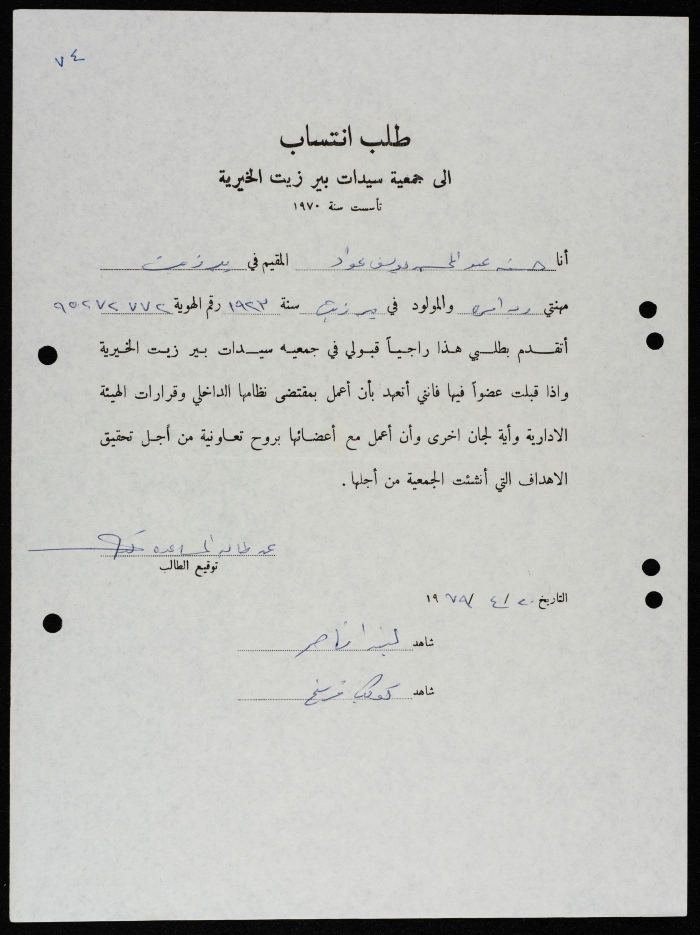 ٧٤
طلب انتساب
الى جمعية سيدات بير زيت الخيرية
تأسست سنة ١٩٧٠
أنا حسنه عبد المحسن يوسف عواد المقيم في بير زيت
مهنتي والمولود في بير زيت سنة ١٩٢٣ رقم الهوية ٩٥٢٧٢٧٧٢
أتقدم بطلبي هذا راجياً قبولي في جمعيه سيدات بير زيت الخيرية
واذا قبلت عضواً فيها فانني أتعهد بأن أعمل بمقتضى نظامها الداخلي وقرارات الهيئة
الادارية وأية لجان اخرى وأن أعمل مع أعضائها بروح تعاونية من أجل تحقيق
الاهداف التي أنشئت الجمعية من أجلها .
عن طالبة المساعده
توقيع الطالب
التاريخ ٢٠ / ٤ / ١٩٧٩
شاهد ناصر
شاهد كوكب فرح